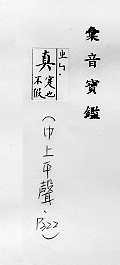 彙音寶鑑
ㄓㄣ
真 實也
不假
(巾上平聲·P322)